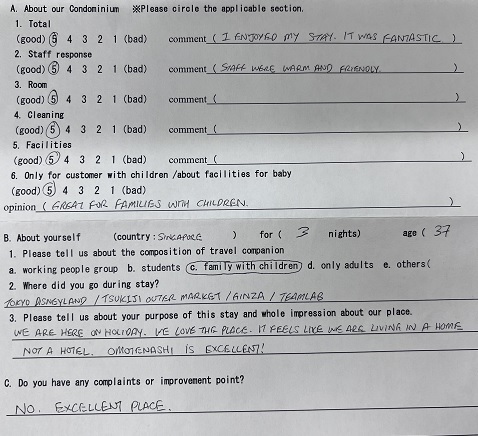 A. About our Condominium ※Please circle the applicable section.
1. Total
(good) 5 4 3 2 1 (bad) comment ( I ENJOYED MY STAY. IT WAS FANTASTIC )
2. Staff response
(good) 5 4 3 2 1 (bad) comment ( STAFF WERE WARM AND FRIENDLY. )
3. Room
(good) 5 4 3 2 1 (bad) comment ( )
4. Cleaning
(good) 5 4 3 2 1 (bad) comment ( )
5. Facilities
(good) 5 4 3 2 1 (bad) comment ( )
6. Only for customer with children /about facilities for baby
(good) 5 4 3 2 1 (bad)
opinion ( GREAT FOR FAMILIES WITH CHILDREN. )
B. About yourself (country: SINGAPORE ) for ( 3 nights) age ( 37
1. Please tell us about the composition of travel companion
a. working people group b. students c. family with children d. only adults e. others(
2. Where did you go during stay?
TOKYO DISNEYLAND / TSUKIJI OUTER MARKET / GINZA / TEAMLAB
3. Please tell us about your purpose of this stay and whole impression about our place.
WE ARE HERE ON HOLIDAY. WE LOVE THE PLACE. IT FEELS LIKE WE ARE LIVING IN A HOME
NOT A HOTEL. OMOTENASHI IS EXCELLENT!
C. Do you have any complaints or improvement point?
NO. EXCELLENT PLACE.